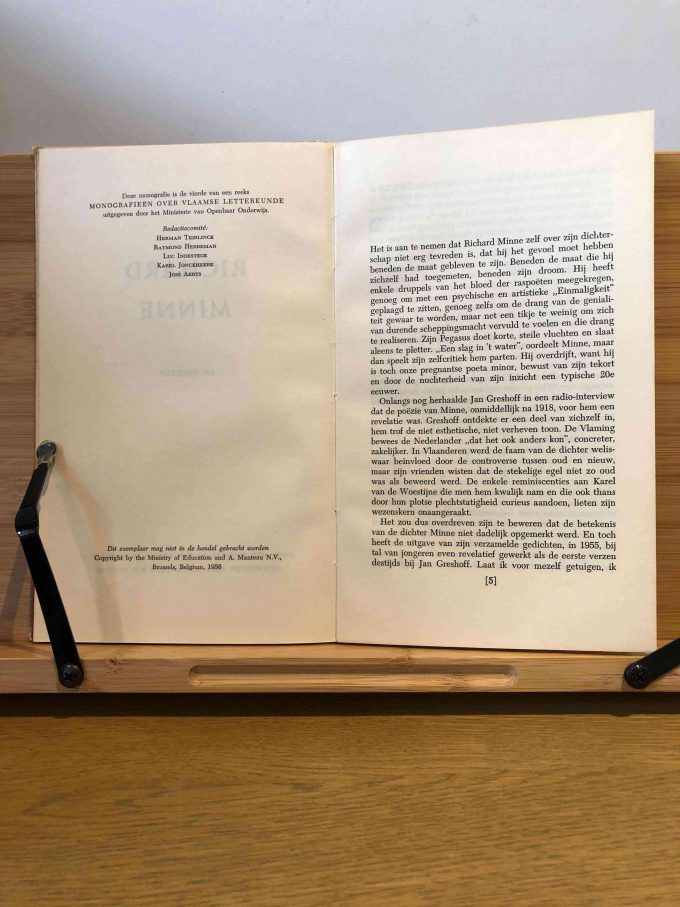 Deze monografie is de vierde van een reeks
MONOGRAFIEEN OVER VLAAMSE LETTERKUNDE
uitgegeven door het Ministerie van Openbaar Onderwijs.
Redactiecomité:
HERMAN TEIRLINCK
RAYMOND HERREMAN
LUC INDESTEGE
KAREL JONCKHEERE
JOSÉ AERTS
Dit exemplaar mag niet in de handel gebracht worden
Copyright by the Ministry of Education and A. Manteau N.V.,
Brussels, Belgium, 1956
Het is aan te nemen dat Richard Minne zelf over zijn dichter-
schap niet erg tevreden is, dat hij het gevoel moet hebben
beneden de maat gebleven te zijn. Beneden de maat die hij
zichzelf had toegemeten, beneden zijn droom. Hij heeft
enkele druppels van het bloed der raspoëten meegekregen,
genoeg om met een psychische en artistieke „Einmaligkeit”
geplaagd te zitten, genoeg zelfs om de drang van de geniali-
teit gewaar te worden, maar net een tikje te weinig om zich
van durende scheppingsmacht vervuld te voelen en die drang
te realiseren. Zijn Pegasus doet korte, steile vluchten en slaat
aleens te pletter. „Een slag in 't water”, oordeelt Minne, maar
dan speelt zijn zelfcritiek hem parten. Hij overdrijft, want hij
is toch onze pregnantse poeta minor, bewust van zijn tekort
en door de nuchterheid van zijn inzicht een typische 20e
eeuwer.
Onlangs nog herhaalde Jan Greshoff in een radio-interview
dat de poëzie van Minne, onmiddellijk na 1918, voor hem een
revelatie was. Greshoff ontdekte er een deel van zichzelf in,
hem trof de niet esthetische, niet verheven toon. De Vlaming
bewees de Nederlander „dat het ook anders kon”, concreter,
zakelijker. In Vlaanderen werd de faam van de dichter welis-
waar beïnvloed door de controverse tussen oud en nieuw,
maar zijn vrienden wisten dat de stekelige egel niet zo oud
was als beweerd werd. De enkele reminiscenties aan Karel
van de Woestijne die men hem kwalijk nam en die ook thans
door hun plotse plechtstatigheid curieus aandoen, lieten zijn
wezenskern onaangeraakt.
Het zou dus overdreven zijn te beweren dat de betekenis
van de dichter Minne niet dadelijk opgemerkt werd. En toch
heeft de uitgave van zijn verzamelde gedichten, in 1955, bij
tal van jongeren even revelatief gewerkt als de eerste verzen
destijds bij Jan Greshoff. Laat ik voor mezelf getuigen, ik
[5]